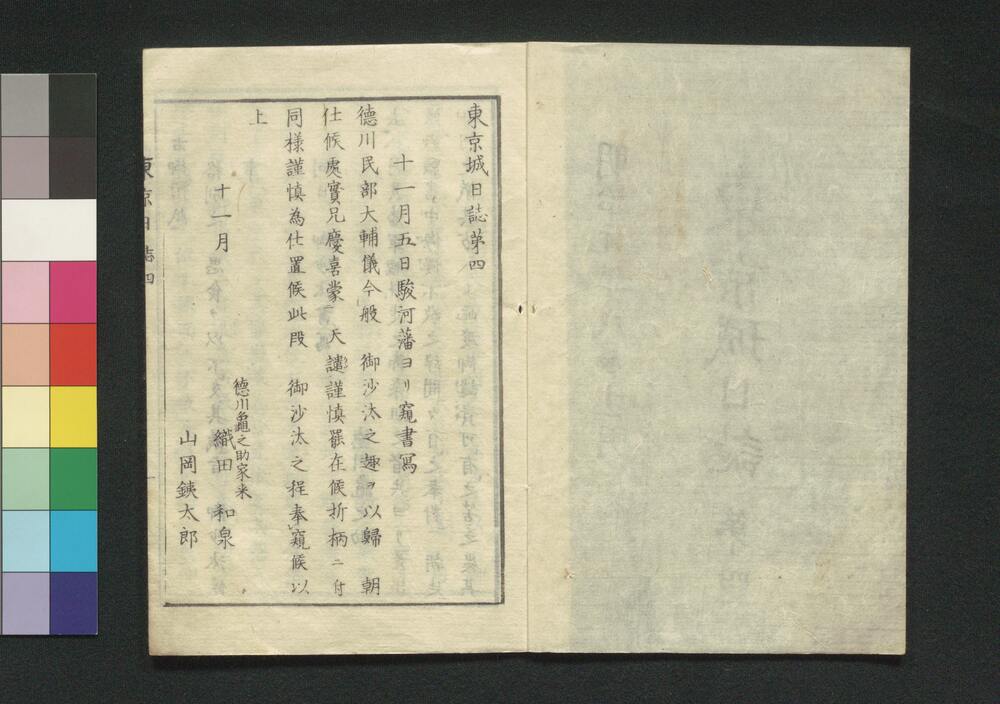 東京城日誌第四
十一月五日駿河藩ヨリ窺書寫
德川民部大輔儀今般 御沙汰之趣ヲ以歸 朝
仕候處實兄慶喜蒙 天譴謹慎罷在候折柄ニ付
同様謹慎為仕置候此段 御沙汰之程奉窺候以
上
十一月
德川龜之助家来
織田 和泉
山岡鉄太郎
東京日誌四